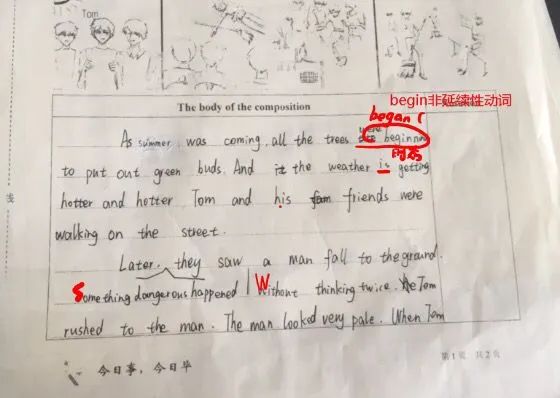 Tom
The body of the composition
begin非延续性动词
began
were
As summer was coming, all the trees beginning
时态
to put out green buds. And the weather is getting
hotter and hotter Tom and his friends were
walking on the street.
Later, they saw a man fall to the ground.
Something dangerous happened Without thinking twice. Tom
rushed to the man. The man looked very pale. When Tom
线
今日事，今日毕
第1页 共2页